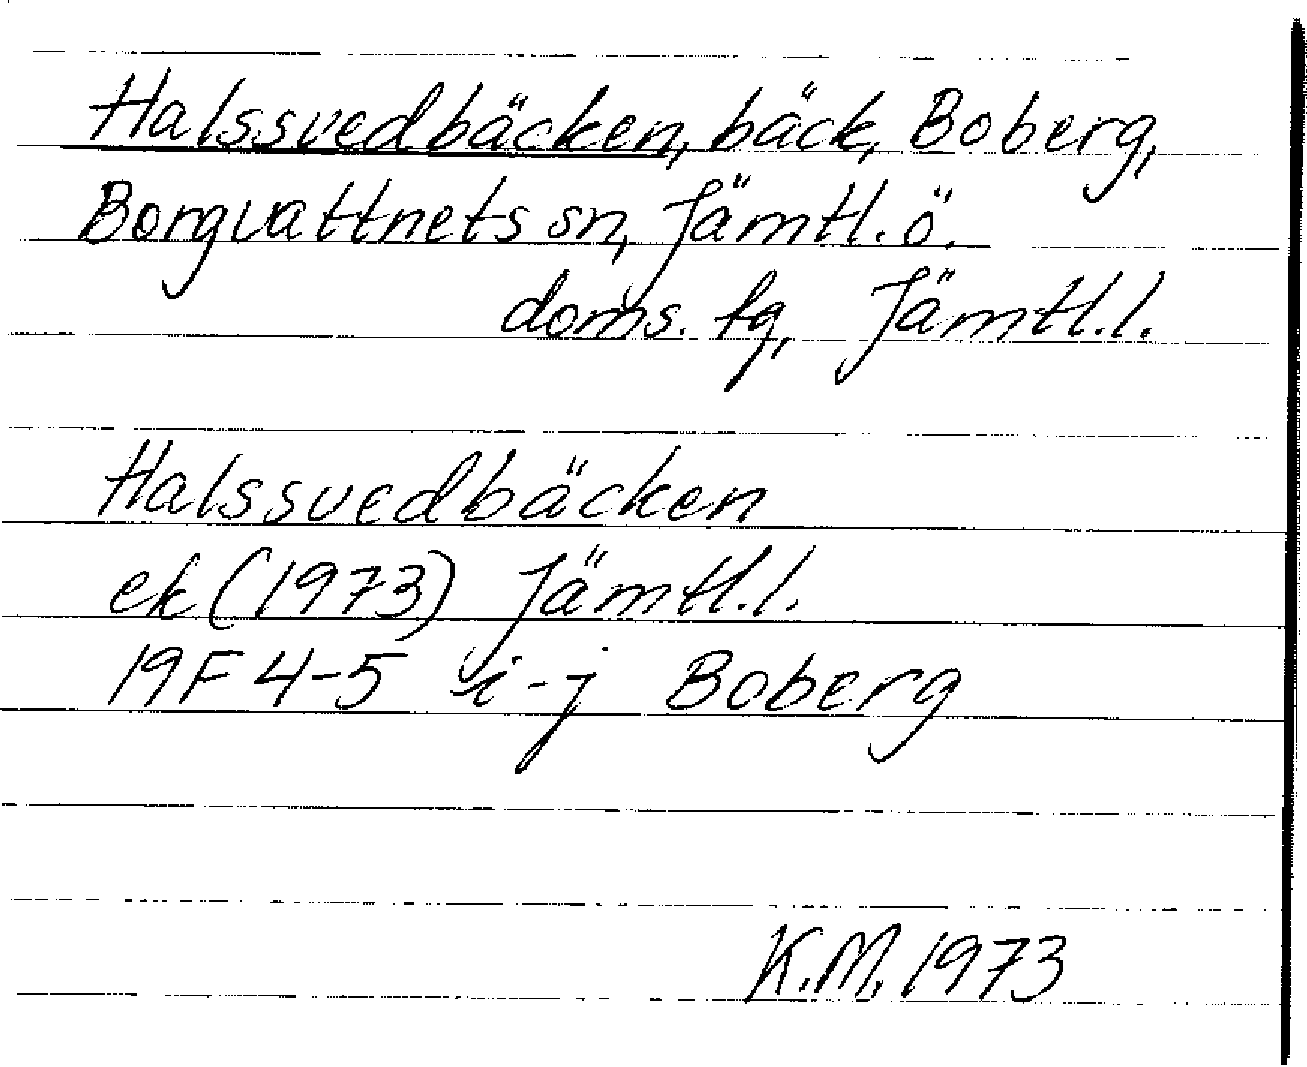 Halssvedbäcken, bäck, Boberg,
Borgvattnets sn, Jämtl. ö.
doms. fq, Jämtl. l.
Halssvedbäcken
ek (1973) Jämtl. l.
19F 4-5 i-j Boberg
K.M. 1973